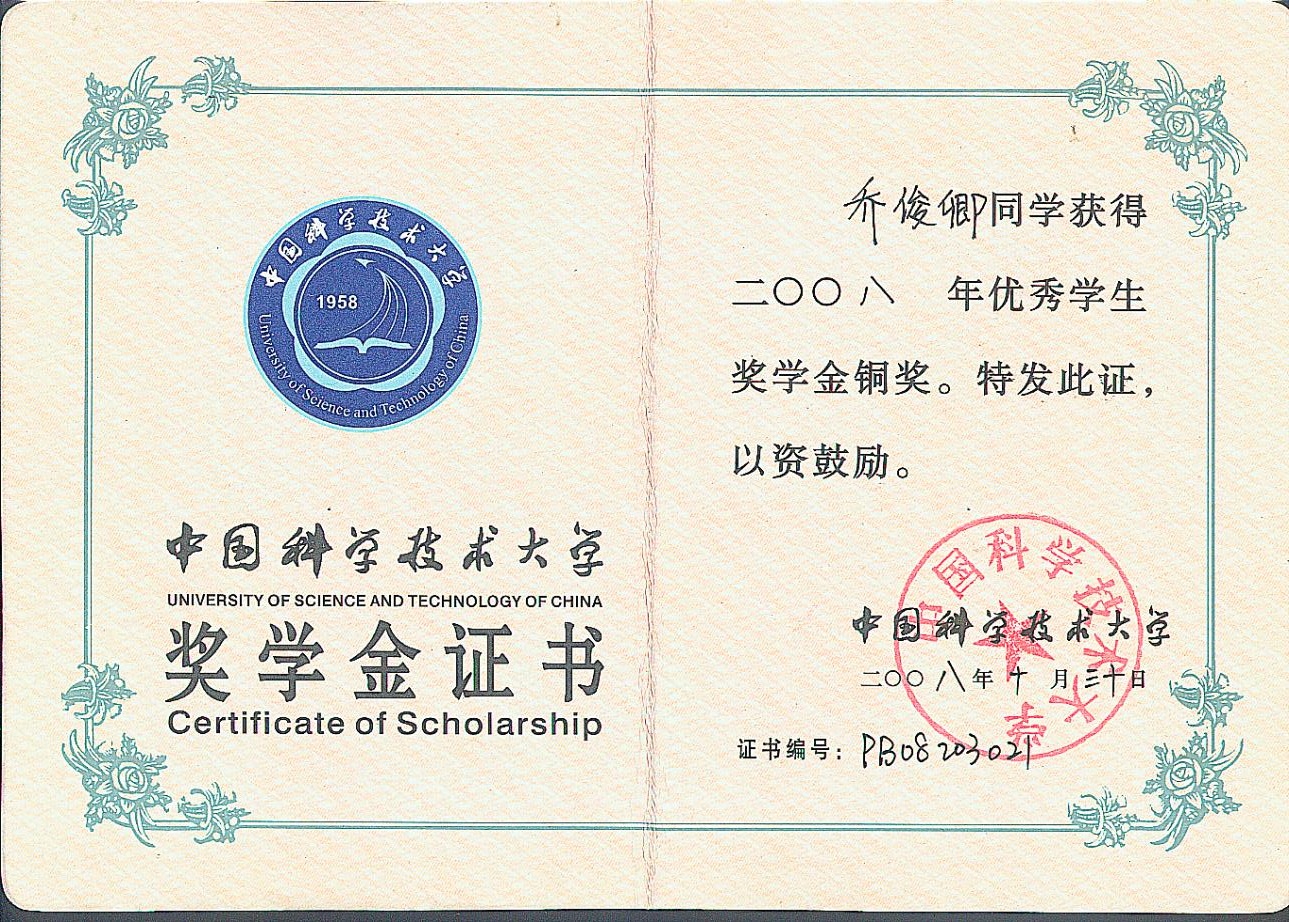 中国科学技术大学
1958
University of Science and Technology of China
中国科学技术大学
UNIVERSITY OF SCIENCE AND TECHNOLOGY OF CHINA
奖学金证书
Certificate of Scholarship
乔俊卿同学获得
二〇〇八 年优秀学生
奖学金铜奖。特发此证，
以资鼓励。
中国科学技术大学
中国科学技术大学
二〇〇八年十月三十日
证书编号：PB08203021